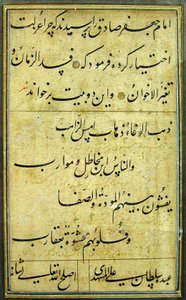 امام جعفر صادق پرسیدند که چرا عزلت
اختیار کرده فرمود که فسد الزمان و
تغیر الاخوان و این دو بیت بر خواند
ذهب الوفاء ذهاب امس الذاهب
والناس بین مخاتل و موارب
یفشون بینهم المودة والصفا
وقلوبهم محشوة بعقارب
عبده سلطان علی المشهدی